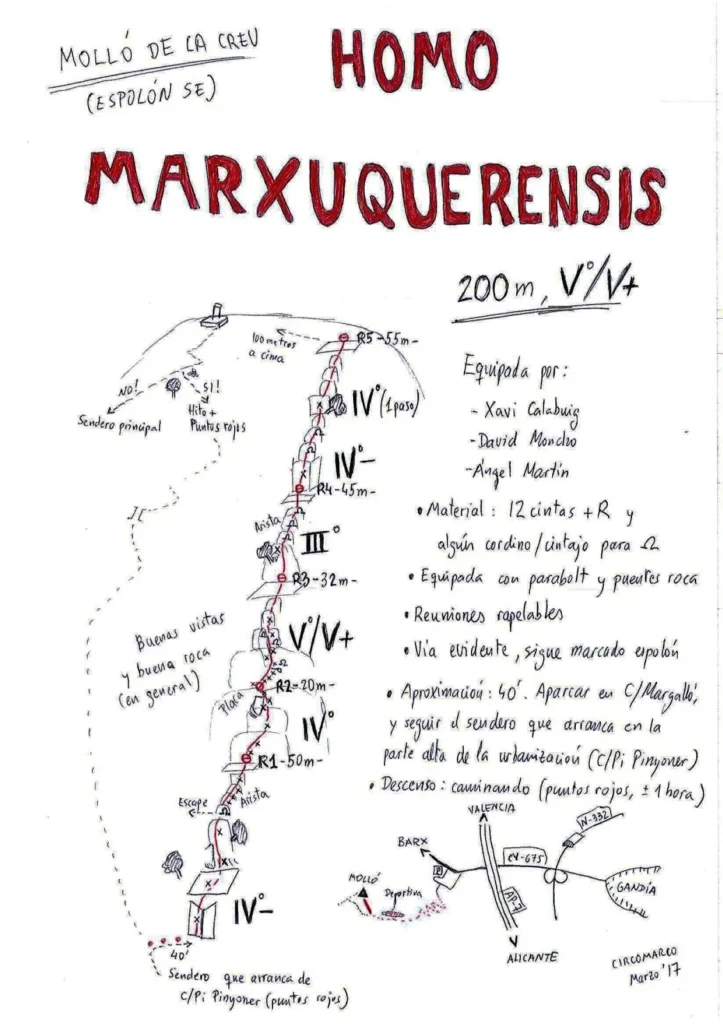 MOLLÓ DE LA CREU
(ESPOLÓN SE)
HOMO
MARXUQUERENSIS
200m, Vº/V+
Equipada por:
- Xavi Calabuig
- David Moncho
- Angel Martín
• Material: 12 cintas + R y
algún cordino/cintajo para Ω
• Equipada con parabolt y puentes roca
• Reuniones rapelables
• Vía evidente, sigue marcado espolón
• Aproximación: 40'. Aparcar en C/Margalló,
y seguir el sendero que arranca en la
parte alta de la urbanización (C/Pi Pinyoner)
• Descenso: caminando (puntos rojos, ± 1 hora)
100 metros
a cima
R5-55m-
NO!
SI!
Sendero principal
Hito +
Puntos rojos
IVº (1 paso)
IVº-
R4-45m-
Arista
IIIº
R3-32m-
Buenas vistas
y buena roca
(en general)
Vº/V+
R2-20m-
Placa
IVº
R1-50m-
Arista
Escape
IVº-
40'
Sendero que arranca de
C/Pi Pinyoner (puntos rojos)
VALENCIA
N-332
BARX
CV-675
P
MOLLÓ
Deportiva
AP-7
GANDÍA
ALICANTE
CIRCOMARCO
Marzo '17